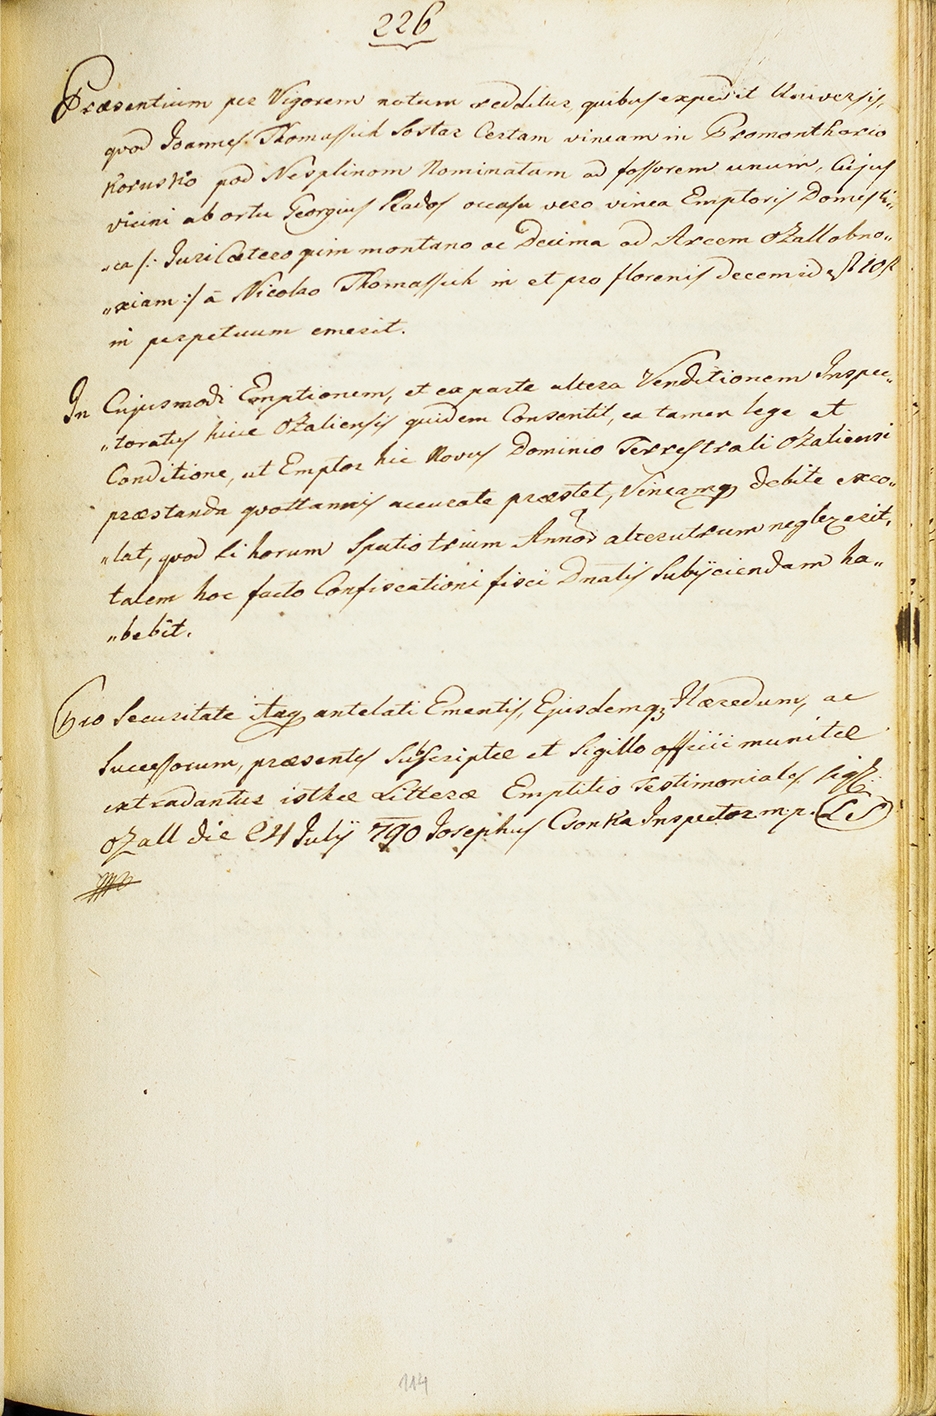 226
Præsentium per Vigorem notum redditur quibus expedit Universis,
qvod Joannes Thomassich Sostar Certam vineam in Promonthorio
Korusko pod Nesplinom Nominatam ad fossorem unum, Cujus
vicini ab ortu Georgius Rados occasu vero vinea Emptoris Domesti„
„ca /: Juri Cæteroquin montano ac Decima ad Arcem Ozall obno„
„xiam :/ à Nicolao Thomassich in et pro florenis decem id est 10 f
in perpetuum emerit.
In Cujusmodi Emptionem, et ex parte altera Venditionem Inspec„
„toratus hicce Ozaliensis quidem Consentit, ea tamen lege et
Conditione, ut Emptor hic Novus Dominio Terrestrali Ozaliensi
præstanda qvottannis accurate præstet, Vineamq debite exco„
„lat, qvod si horum Spatio trium Annor alterutrum neglexerit,
talem hoc facto Confiscationi fisci Dnalis Subijciendam ha„
„bebit.
Pro Securitate itaq antelati Ementis, Ejusdemq Hæredum, ac
Successorum, præsentes Subscriptæ et Sigillo officii munitæ
extradantur isthæ Litteræ Emptitio Testimoniales. Sig
Ozall die 24 Julij 790 Josephus Csonka Inspector m.p. (L S)
114